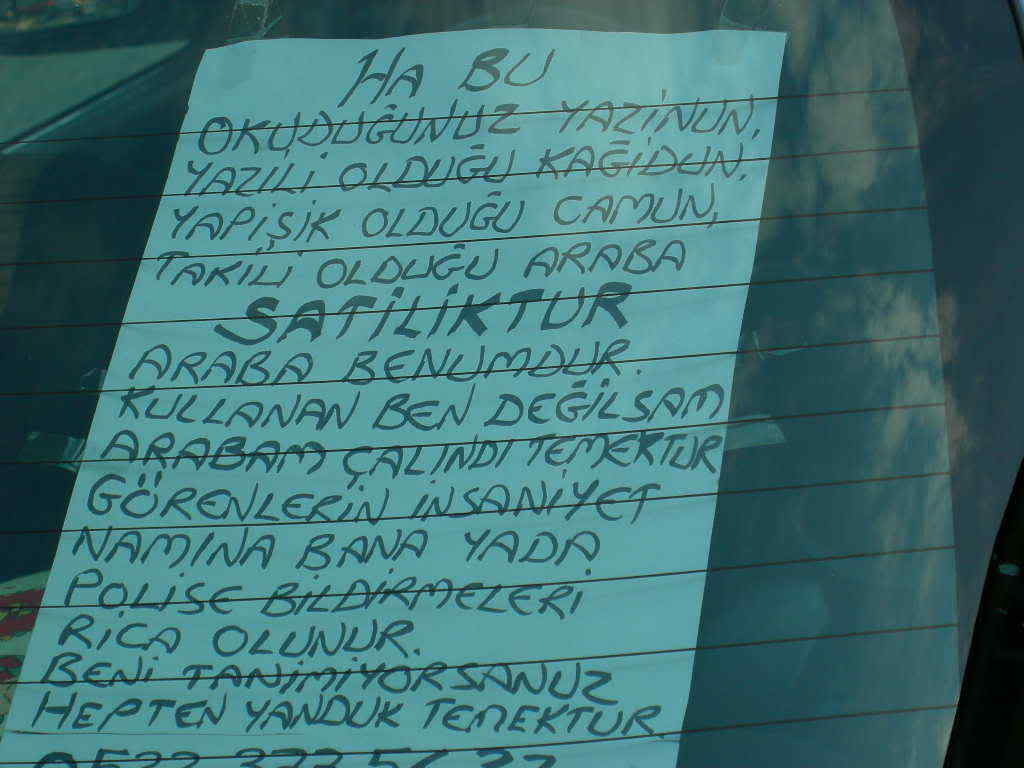 HA BU
OKUDUĞUNUZ YAZİNUN,
YAZILİ OLDUĞU KAĞİDUN,
YAPİŞİK OLDUĞU CAMUN,
TAKİLİ OLDUĞU ARABA
SATİLİKTUR
ARABA BENUMDUR.
KULLANAN BEN DEĞİLSAM
ARABAM ÇALINDI TEMEKTUR
GÖRENLERİN İNSANİYET
NAMINA BANA YADA
POLİSE BİLDİRMELERİ
RİCA OLUNUR.
BENİ TANİMİYORSANUZ
HEPTEN YANDUK TEMEKTUR.